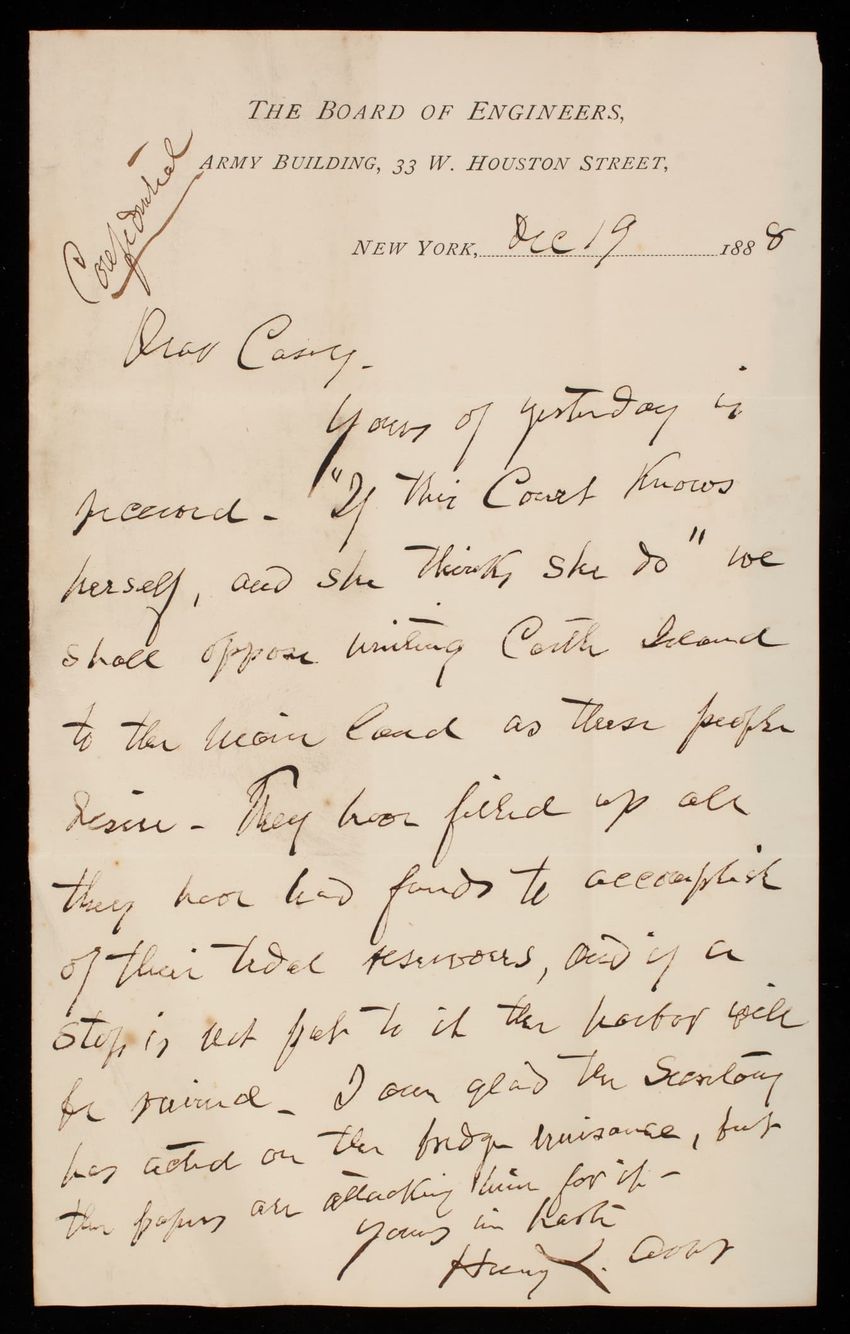 THE BOARD OF ENGINEERS,
ARMY BUILDING, 33 W. HOUSTON STREET,
Confidential
NEW YORK, Dec 19 1888
Dear Casey.
Yours of yesterday is
received - "If this Court Knows
herself, and she thinks she do" we
shall oppose uniting Castle Island
to the main land as these people
desire - They have filled up all
they have had funds to accomplish
of their tidal reservoirs, and if a
stop is not put to it the harbor will
be ruined - I am glad the Secretary
has acted on the bridge nuisance, but
the papers are attacking him for it -
Yours in haste
Henry L. Abbot